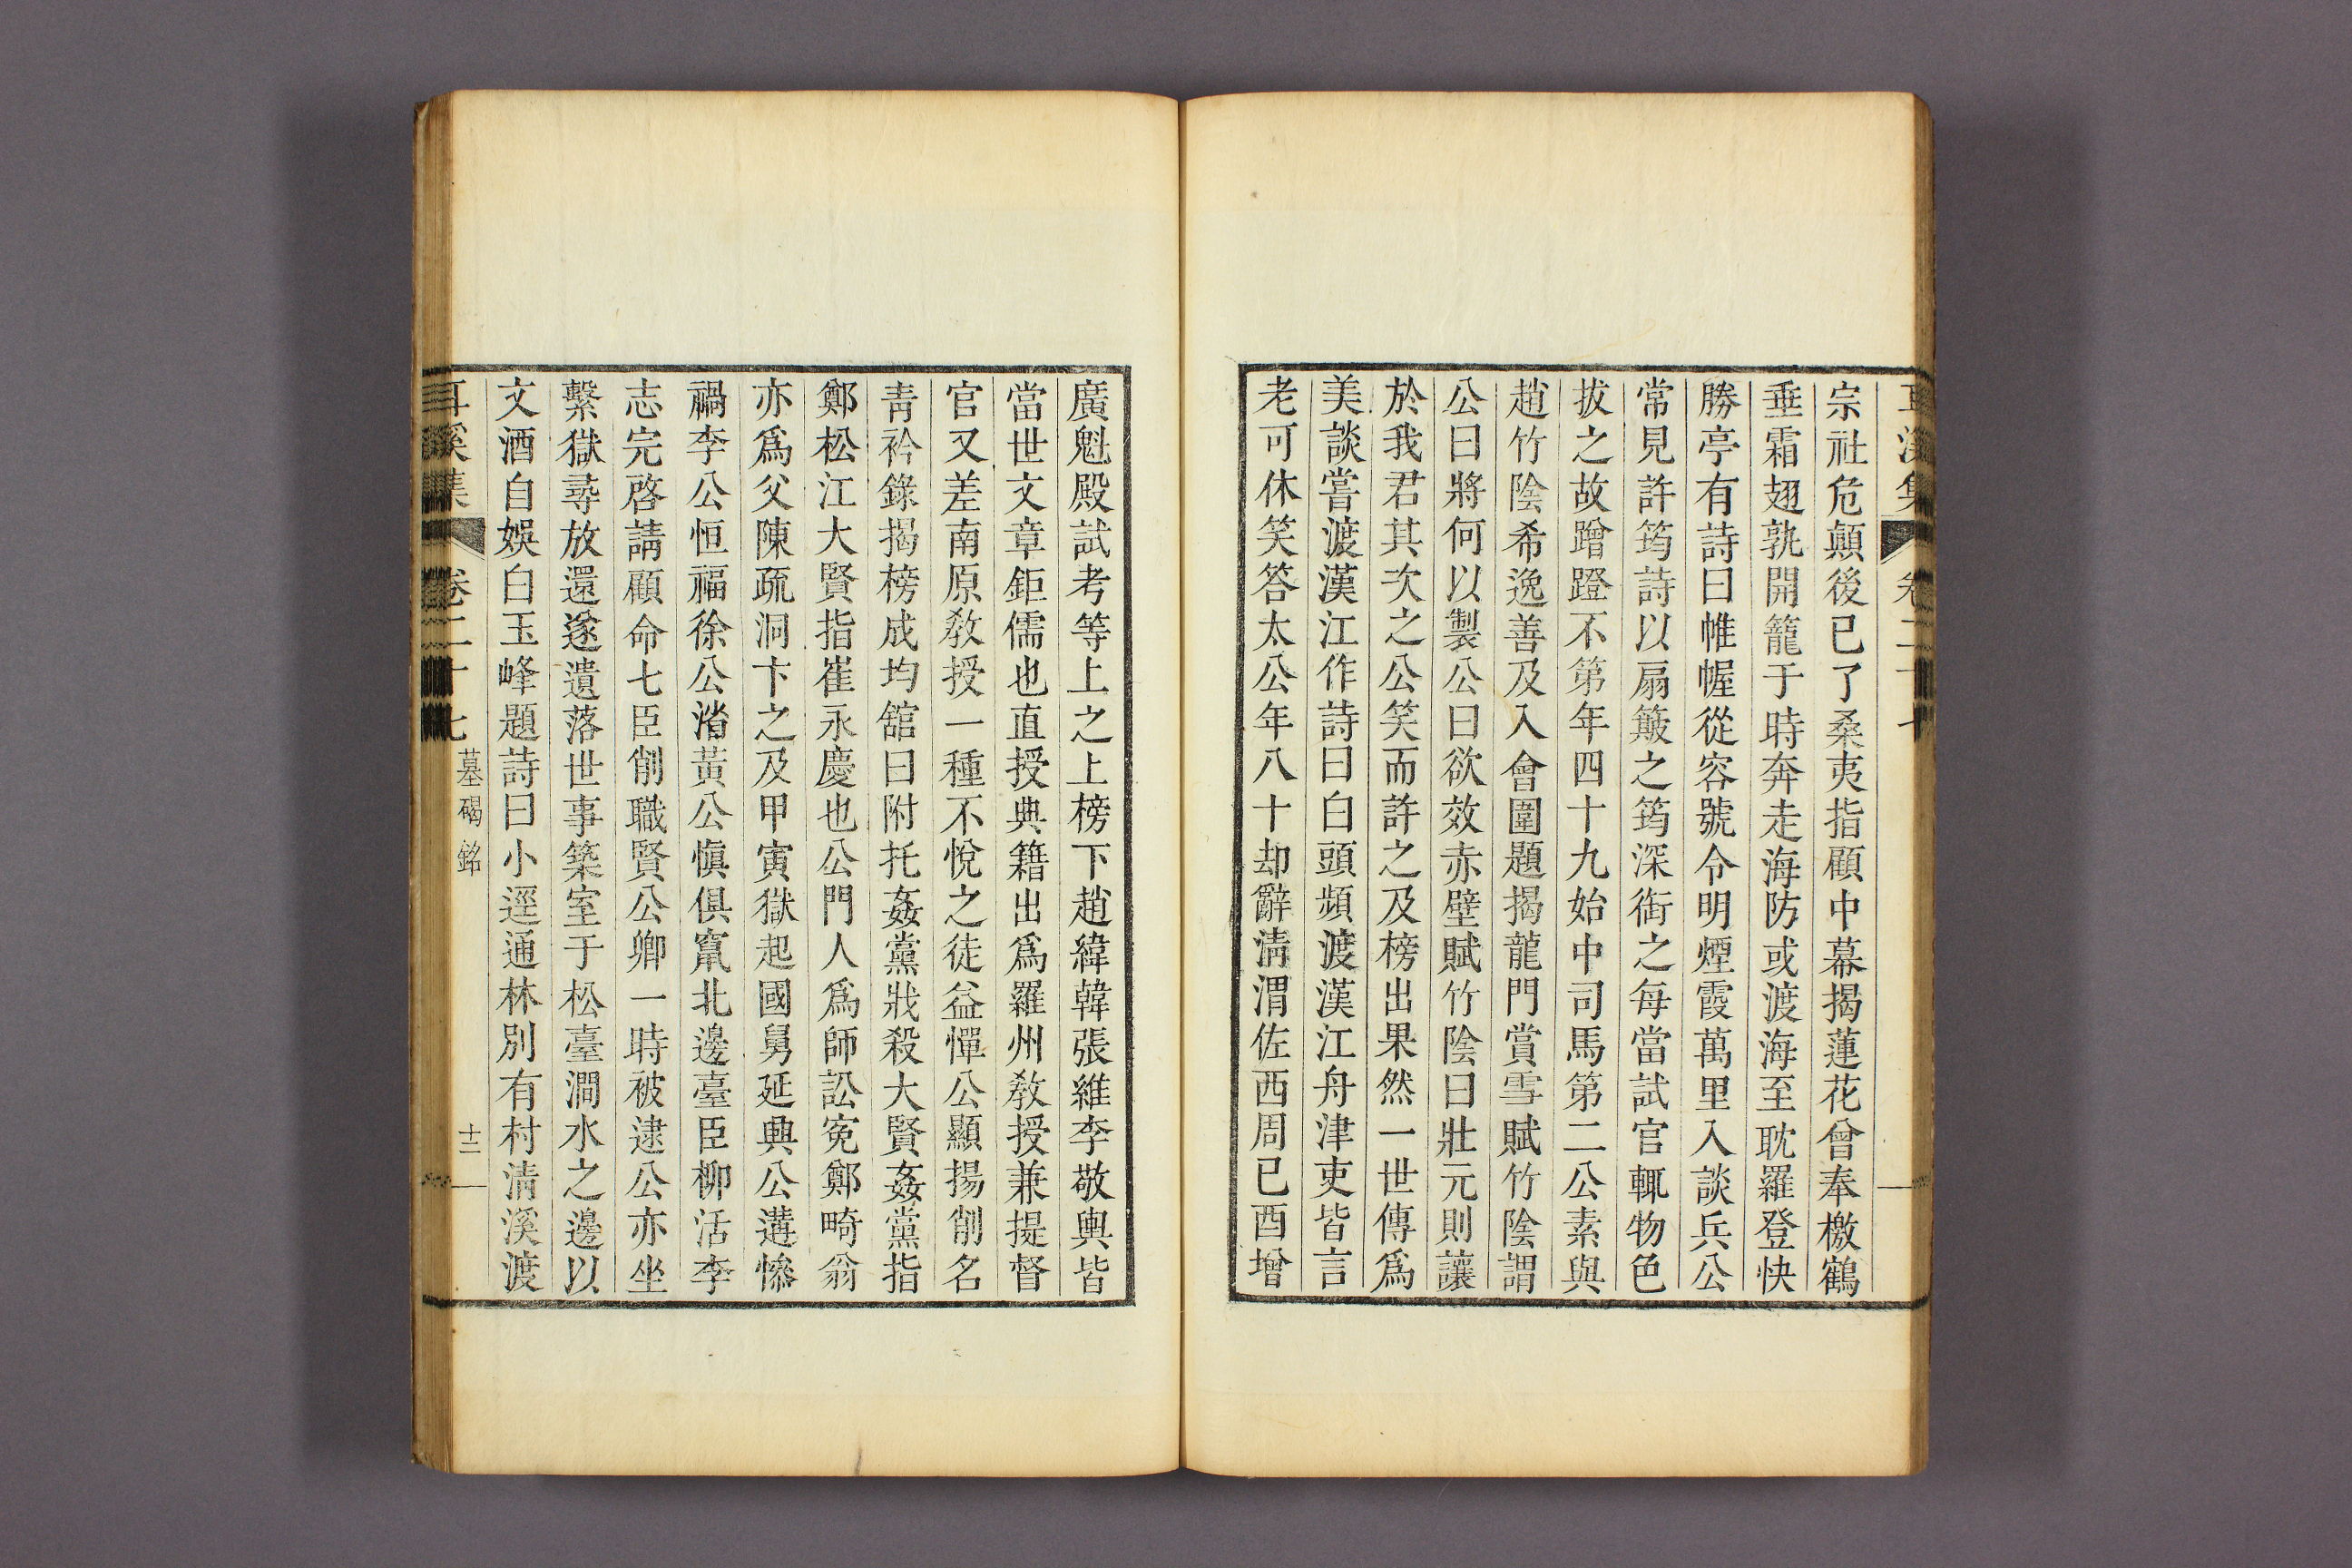 耳溪集 卷二十七
宗社危顛後已了桑夷指顧中幕揭蓮花曾奉檄鶴
垂霜翅孰開籠于時奔走海防或渡海至耽羅登快
勝亭有詩曰帷幄從容號令明煙霞萬里入談兵公
常見許筠詩以扇簸之筠深銜之每當試官輒物色
拔之故蹭蹬不第年四十九始中司馬第二公素與
趙竹陰希逸善及入會圍題揭龍門賞雪賦竹陰謂
公曰將何以製公曰欲效赤壁賦竹陰曰壯元則讓
於我君其次之公笑而許之及榜出果然一世傳爲
美談嘗渡漢江作詩曰白頭頻渡漢江舟津吏皆言
老可休笑答太公年八十却辭淸渭佐西周已酉增
廣魁殿試考等上之上榜下趙緯韓張維李敬輿皆
當世文章鉅儒也直授典籍出爲羅州敎授兼提督
官又差南原敎授一種不悅之徒益憚公顯揚削名
靑衿錄揭榜成均舘曰附托姦黨戕殺大賢姦黨指
鄭松江大賢指崔永慶也公門人爲師訟寃鄭畸翁
亦爲父陳疏洞卞之及甲寅獄起國舅延興公遘慘
禍李公恒福徐公渻黃公愼俱竄北邊臺臣柳活李
志完啓請顧命七臣削職賢公卿一時被逮公亦坐
繫獄尋放還遂遺落世事築室于松臺澗水之邊以
文酒自娛白玉峰題詩曰小逕通林別有村淸溪渡
耳溪集 卷二十七 墓碣銘 十二